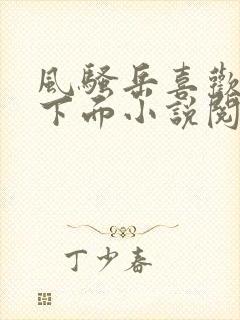 風騷岳喜歡
下而小說閱
丁少春